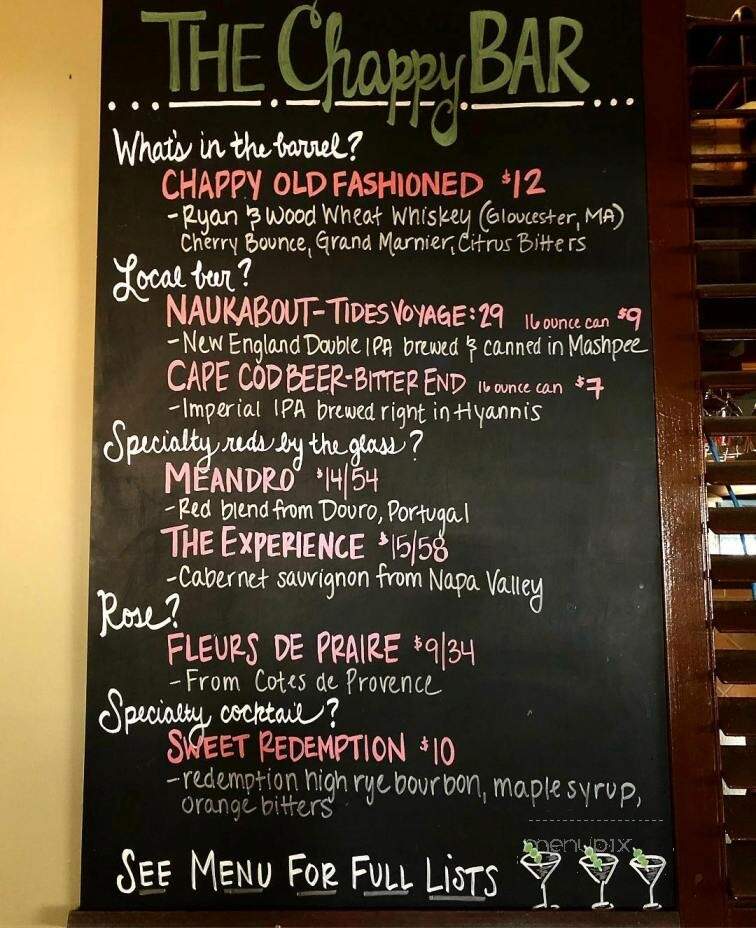 THE Chappy BAR
What's in the barrel?
CHAPPY OLD FASHIONED $12
-Ryan & Wood Wheat Whiskey (Gloucester, MA)
Cherry Bounce, Grand Marnier, Citrus Bitters
Local beer?
NAUKABOUT-TIDES VOYAGE:29 16 ounce can $9
-New England Double IPA brewed & canned in Mashpee
CAPE COD BEER-BITTER END 16 ounce can $7
-Imperial IPA brewed right in Hyannis
Specialty reds by the glass?
MEANDRO $14/54
-Red blend from Douro, Portugal
THE EXPERIENCE $15/58
-Cabernet sauvignon from Napa Valley
Rose?
FLEURS DE PRAIRE $9/34
-From Cotes de Provence
Specialty cocktail?
SWEET REDEMPTION $10
-redemption high rye bourbon, maple syrup,
orange bitters
menupix
SEE MENU FOR FULL LISTS